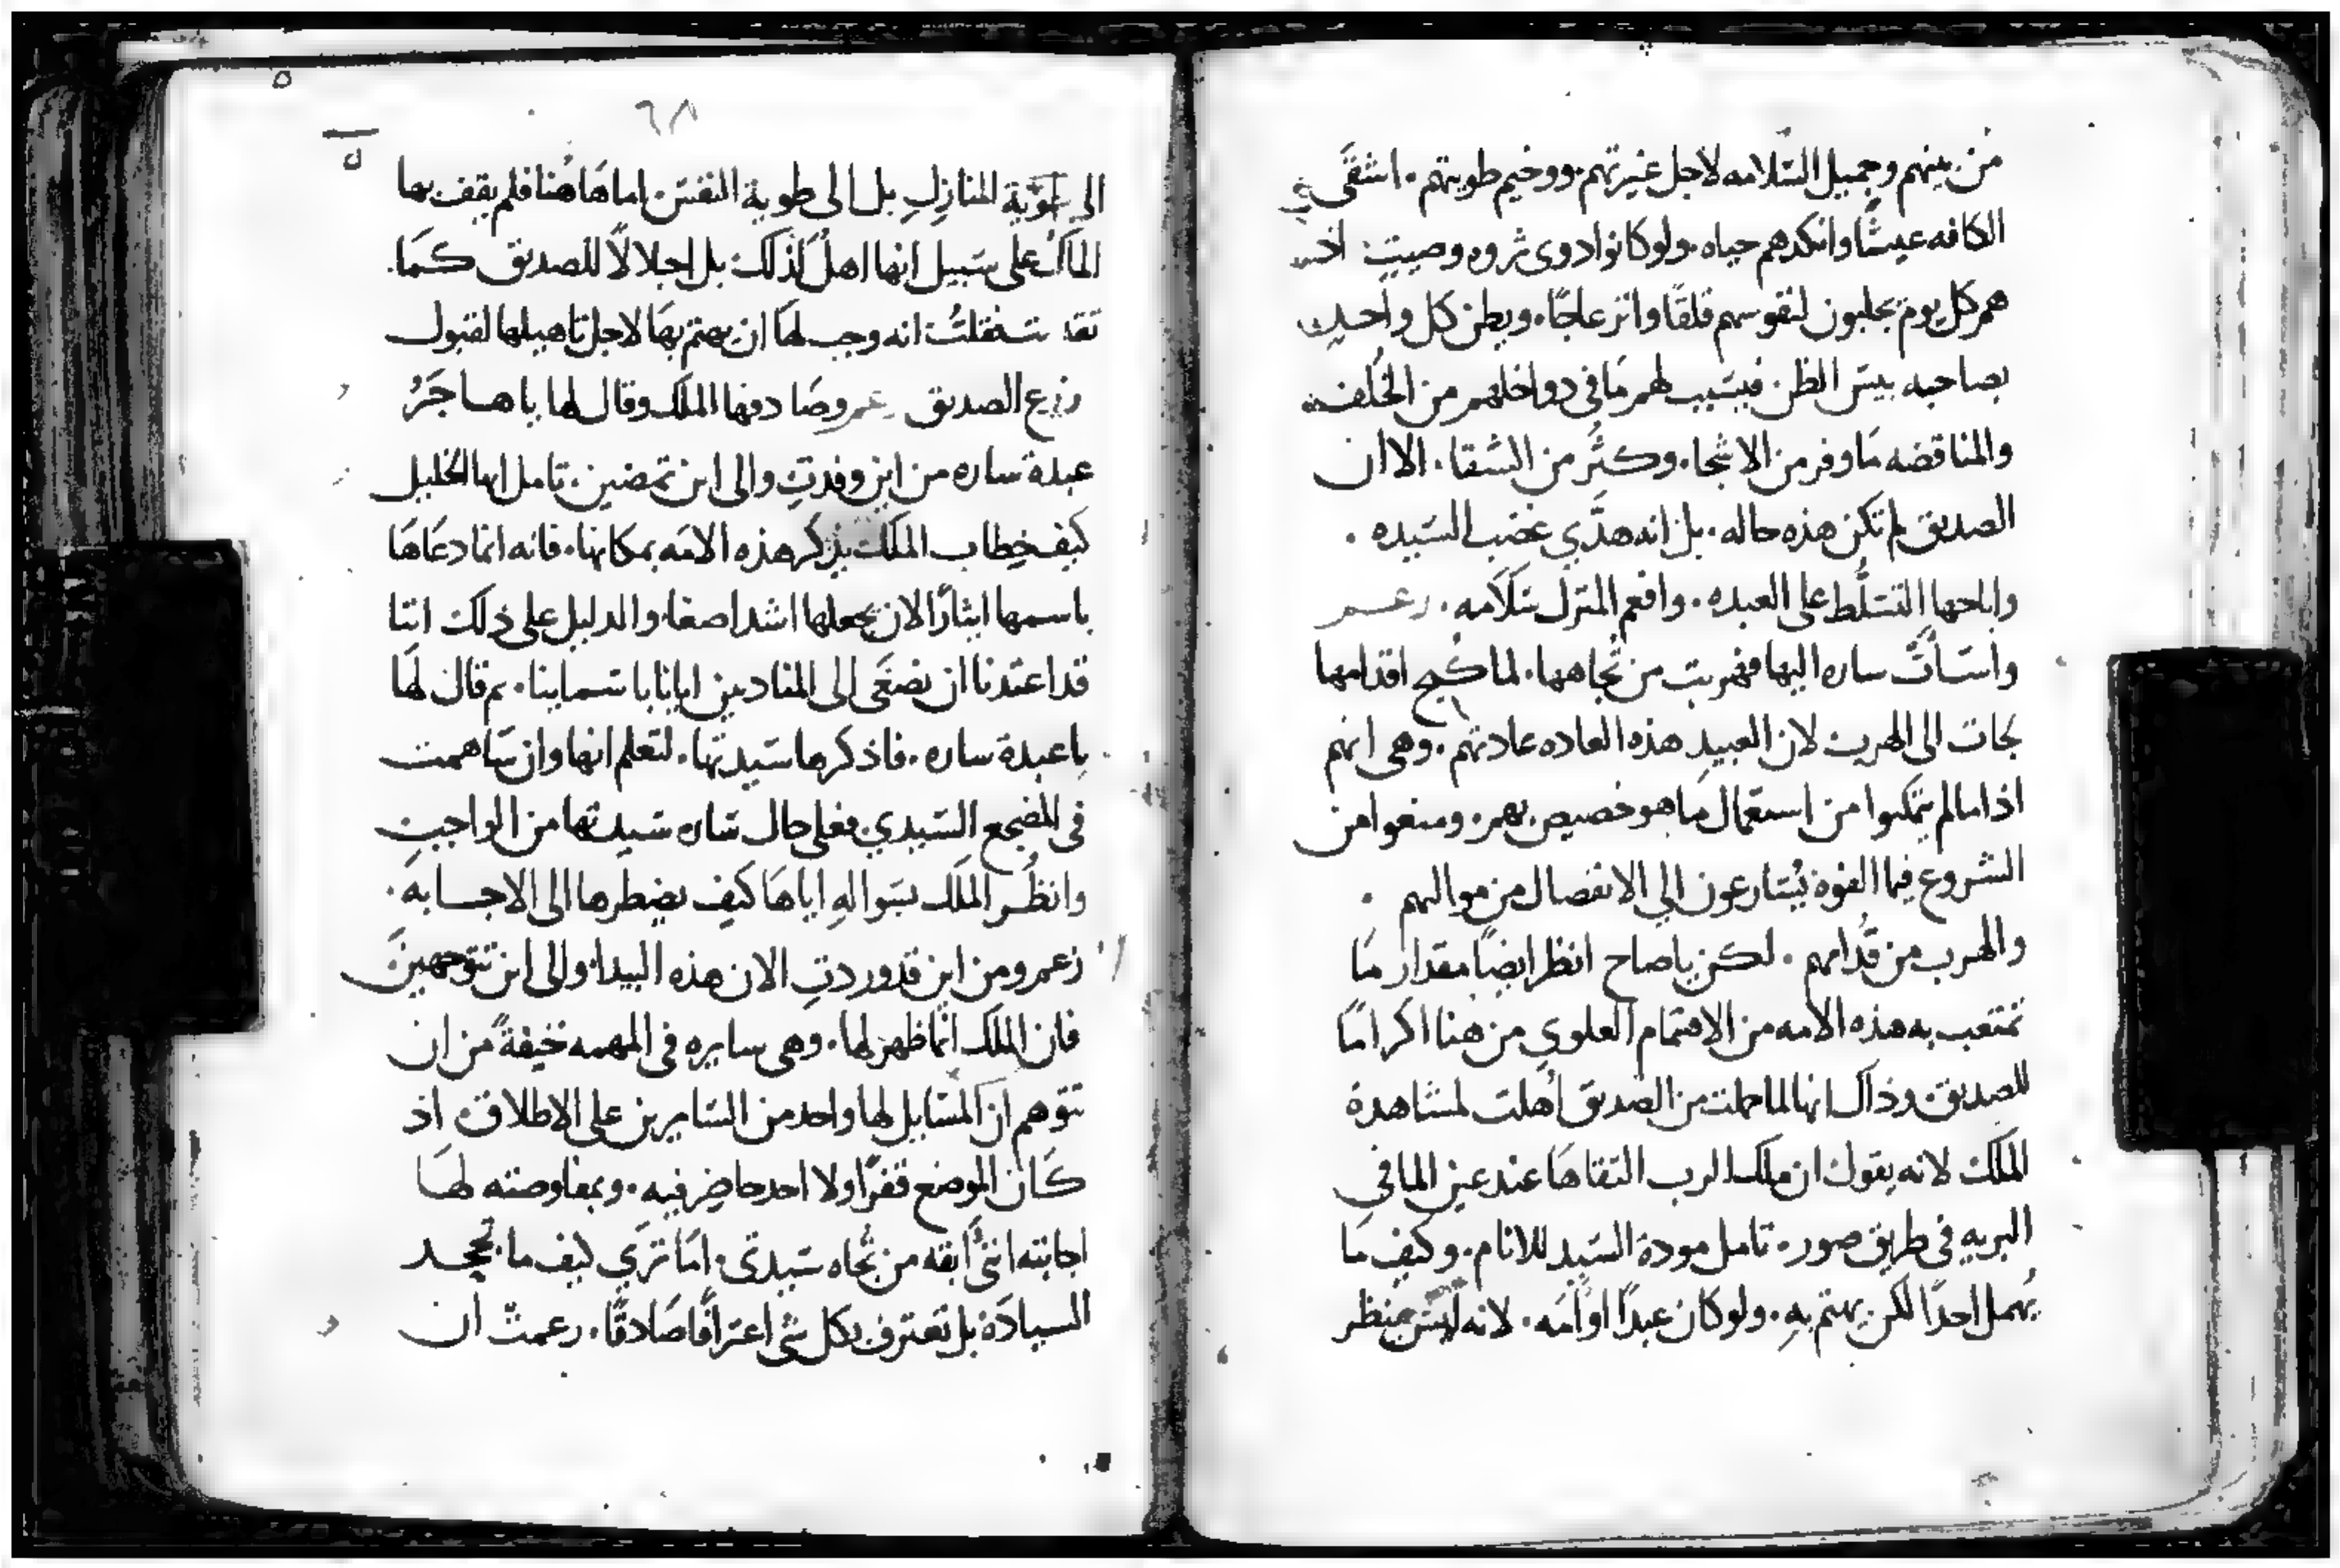 من بينهم وجميل السلامه لاجل غيرتهم. ووخيم طويتهم. اشقَى
الكافه عيشًا وانكدهم حياه. ولو كانوا دوى ثروه وصيتٍ
هم كل يوم يجلبون لنفوسهم قلقًا وانزعاجًا. ويظن كل واحدٍ
بصاحبه بيس الظن. فيسبب لهم مَا في دواخلهم من الخُلف
والمناقضه مَا وفر من الاشجا. وكثُر من الشقا. الا ان
الصديق لم تكن هذه حاله. بل انه هدَّي غضب السَيده.
واباحها التسَلُّط على العبده. وافعم المنزل سَلَامه. زعم
واسَاَت ساره اليها فهربت من تُجاهها. لما كُبح اقدامها
لجات الى الهرب لان العبيد هذه العاده عادتهم. وهى انهم
اذا ما لم يتمكنوا من استعمال مَا هو خصيص بهم. ومنعوا من
الشروع فيما الفوه يُسَارعون الى الانفصال من مواليهم.
والهرب من قُدامهم. لكن ياصاح انظر ايضًا مقدار مَا
تمتعت به هذه الامه من الاهتمام العلوي من هنا اكرامًا
للصديق. وذاك انها لما حملت من الصديق أُهلت لمشاهدة
الملَك لانه يقول ان ملك الرب التقاهَا عند عين الما في
البريهِ في طريق صور. تامل مودة السَيد للانام. وكيف مَا
يُهمل احدًا لكن يهتم بهِ. ولو كان عبدًا او اَمَه. لانه ليس ينظر
٦٨
الى المنازلِ بل الى طوية النفسَ. اما هَاهُنا فلم يقف بها
الملَاك على سَبيل انها اهلٌ لذلك بل اجلالًا للصديق كمَا.
فقلتُ انه وجب لهَا ان يهتم بهَا لاجل تاهيلها لقبول
زرع الصديق زعم وصَادفها الملَك وقال لها ياهاجَرُ
عبدة ساره من اين وفدتِ والى اين تمضين. تامل ايها الخليل
كيف خِطاب الملَك يذكر هذه الامَه بمكانها. فانه انما دعَاهَا
باسمها ايثارًا لان يجعلها اشد اصغا. والدليل على ذلك اننا
قد اعتدنا ان نصغَى الى المنادين ايانا باسَماينا. ثم قال لهَا
ياعبدة ساره. فاذكرها سَيدتها. لتعلم انها وان سَاهمت
فى المضجع السَيدي. فعلى حال سَاره سَيدتها من الواجب
وانظُر الملَك بسَوالهِ اياهَا كيف يضطرها الى الاجابه.
زعم ومن اين قد وردتِ الان هذه البيدا. والى اين تتوجهينَ
فان الملَك انما ظهر لها. وهى سايره فى المهمه خيفةً من ان
تتوهم ان المسَايل لها واحد من السَايرين على الاطلاق اذ
كَان الموضع قفرًا ولا احد حاضِر فيه. وبمفاوضته لهَا
اجابته انني اَبقه من تُجاه سَيدتى. امَا تَرَي كيف ما تُجحد
السيادَة بل تعترف بكل شى اعترافًا صَادقًا. زعمت ان